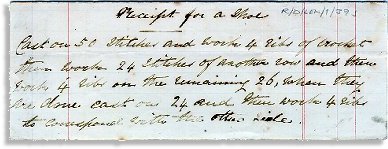 Receipt for a Shoe
Cast on 50 Stitches and work 4 ribs of crochet
then work 24 stitches of another row and then
work 4 ribs on the remaining 26, when they
are done cast on 24 and then work 4 ribs
to correspond with the other side